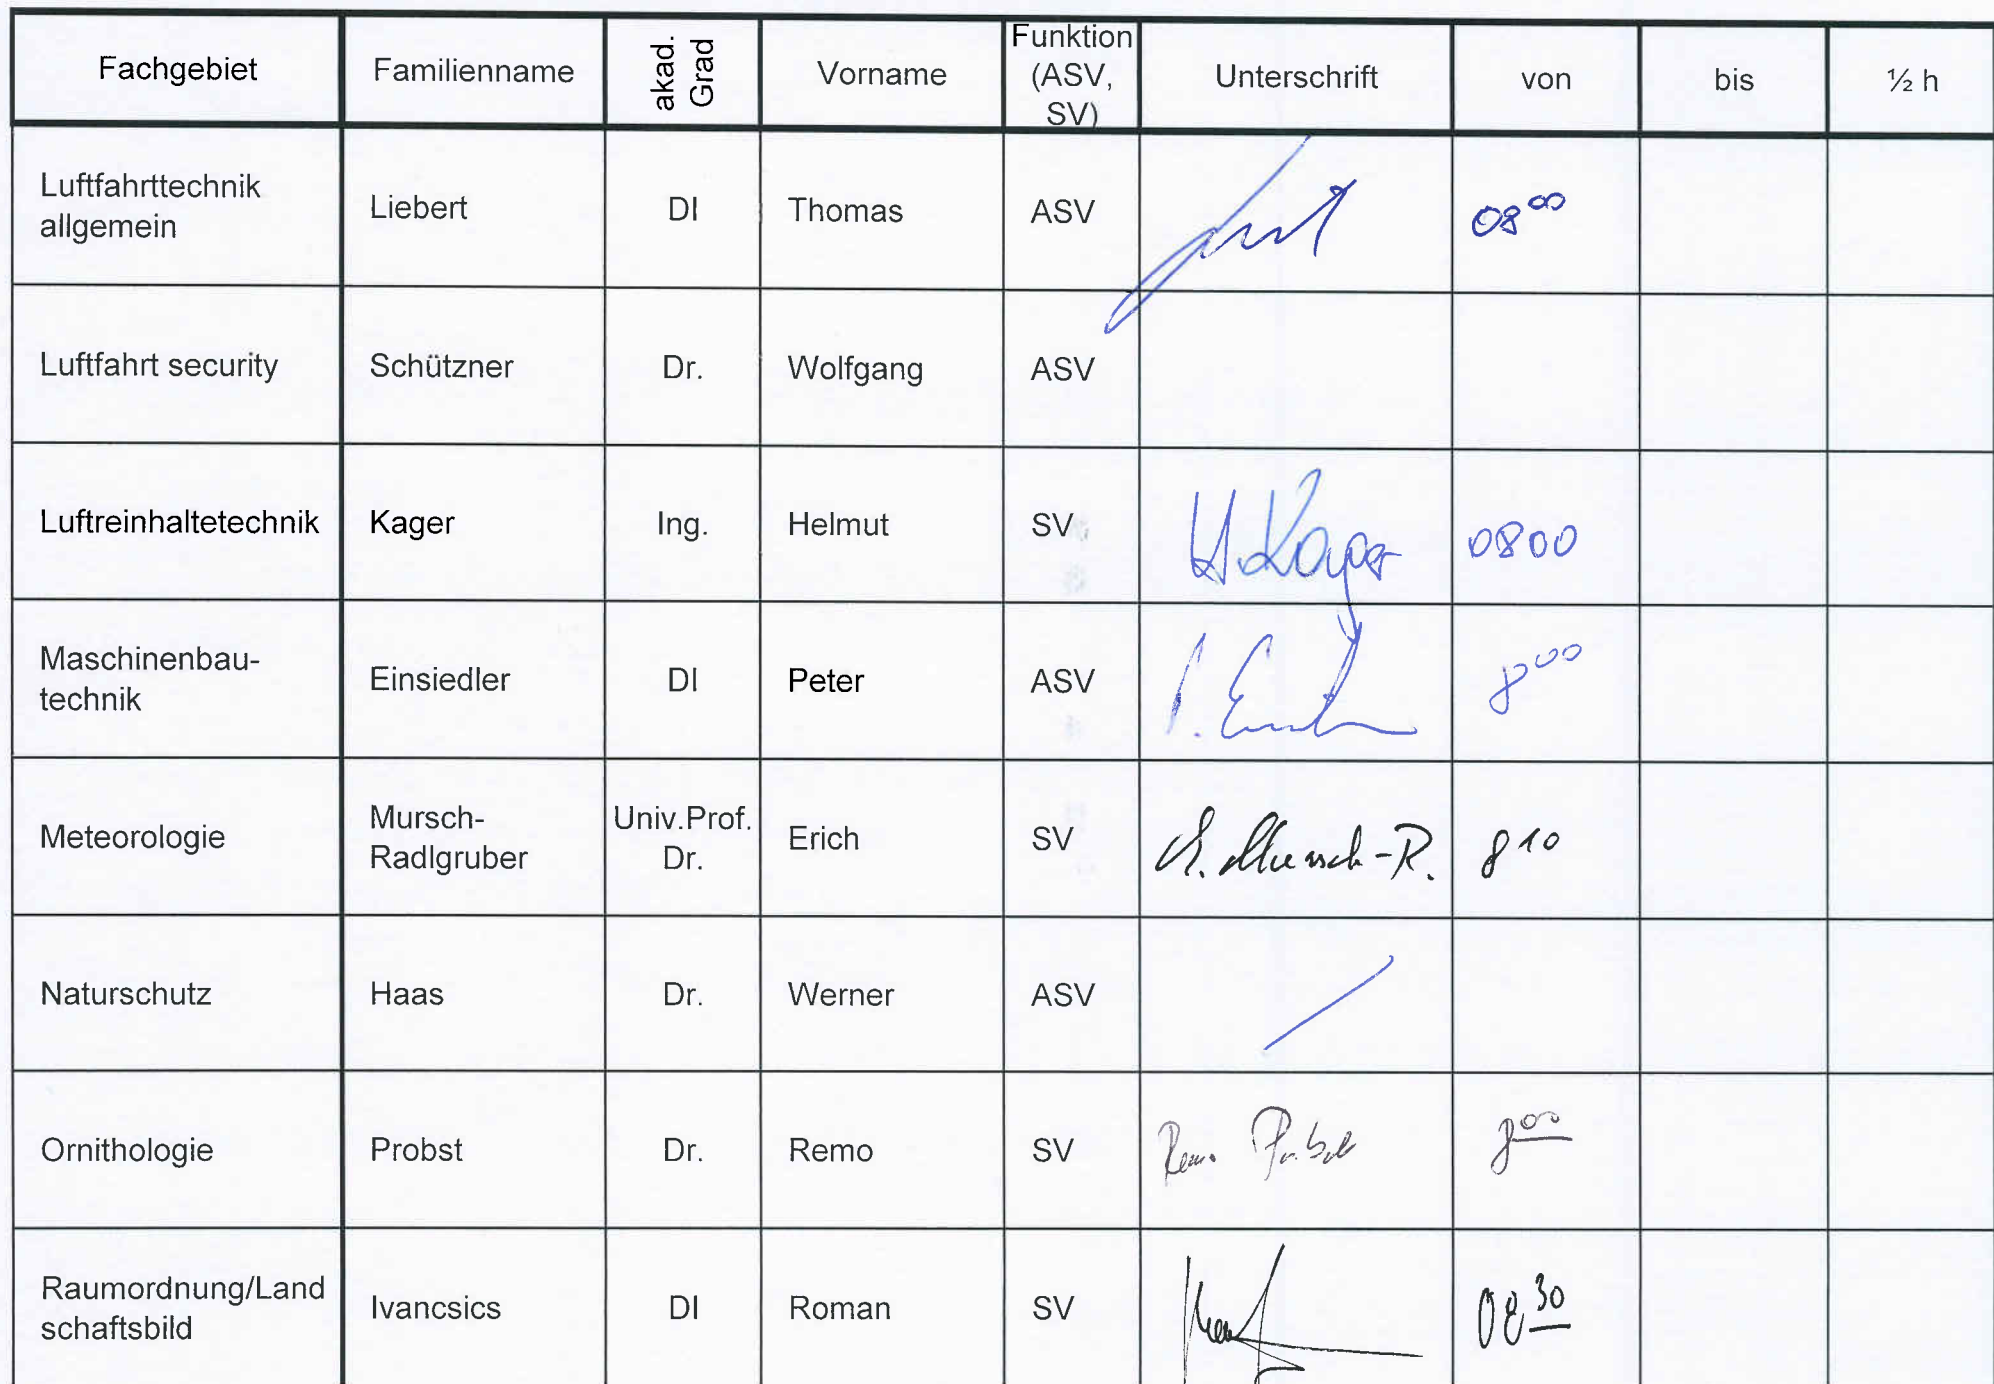 Fachgebiet Familienname akad. Grad Vorname Funktion (ASV, SV) Unterschrift von bis ½ h
Luftfahrttechnik allgemein Liebert DI Thomas ASV 08⁰⁰
Luftfahrt security Schützner Dr. Wolfgang ASV
Luftreinhaltetechnik Kager Ing. Helmut SV H. Kager 0800
Maschinenbau-
technik Einsiedler DI Peter ASV 8⁰⁰
Meteorologie Mursch-
Radlgruber Univ.Prof. Dr. Erich SV E. Mursch-R. 8¹⁰
Naturschutz Haas Dr. Werner ASV
Ornithologie Probst Dr. Remo SV Remo Probst 8⁰⁰
Raumordnung/Land
schaftsbild Ivancsics DI Roman SV 08³⁰